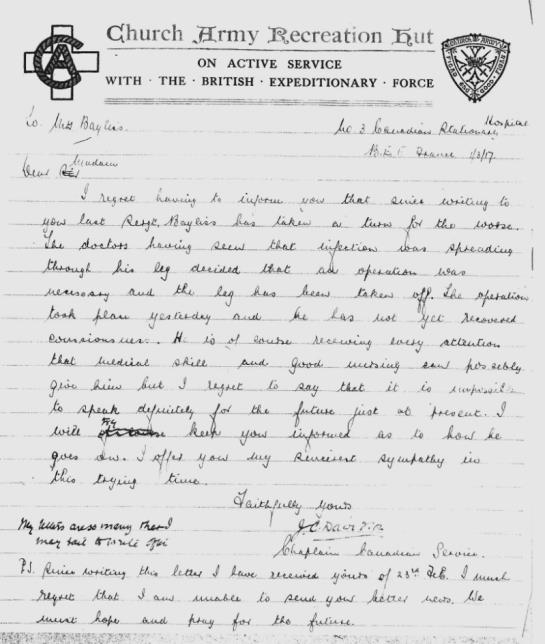 Church Army Recreation Hut
ON ACTIVE SERVICE
WITH · THE · BRITISH · EXPEDITIONARY · FORCE
To Mrs Bayliss.
No 3 Canadian Stationary Hospital
B.E.F France 1/3/17
Dear Madam
I regret having to inform you that since writing to
you last Sergt. Bayliss has taken a turn for the worse.
The doctors having seen that infection was spreading
through his leg decided that an operation was
necessary and the leg has been taken off. The operation
took place yesterday and he has not yet recovered
consciousness. He is of course receiving every attention
that medical skill and good nursing can possibly
give him but I regret to say that it is impossible
to speak definitely for the future just at present. I
will try keep you informed as to how he
goes on. I offer you my sincerest sympathy in
this trying time.
Faithfully yours
J.C.
Chaplain Canadian Service.
My letters are so many that I
may fail to write often
P.S. Since writing this letter I have received yours of 23rd Feb. I much
regret that I am unable to send you better news. We
must hope and pray for the future.